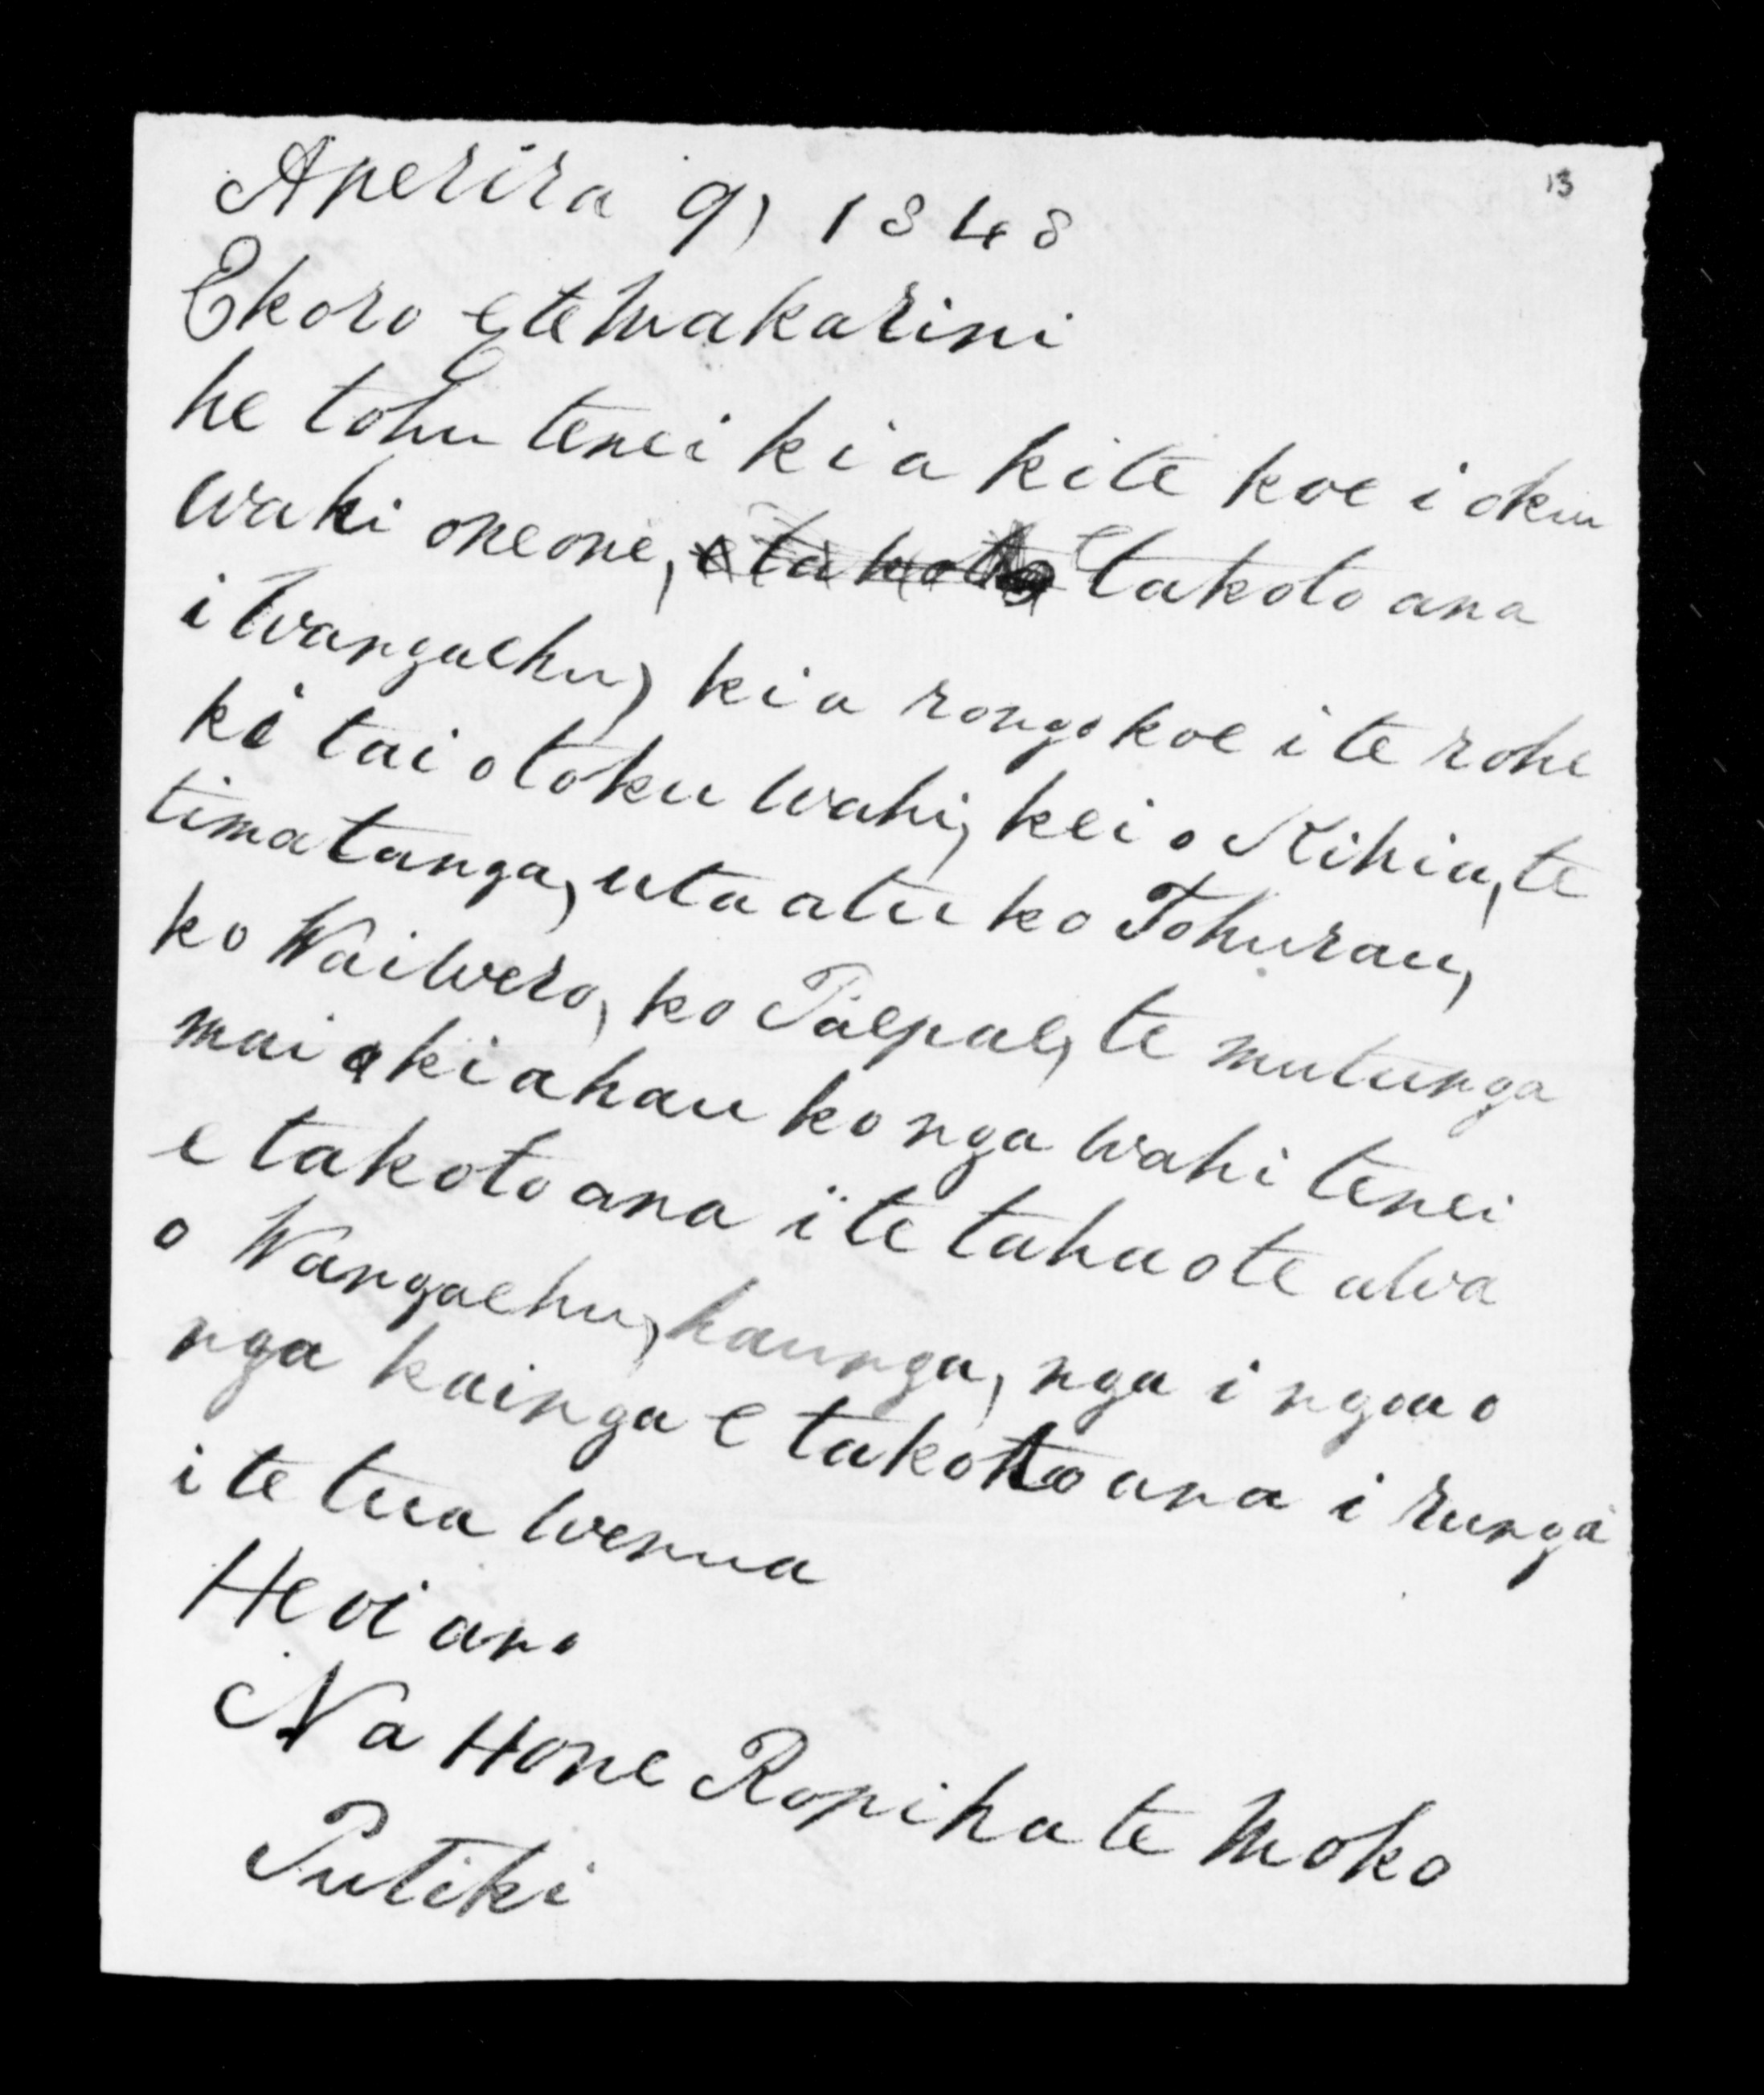 13
Aperira 9, 1848
Ekoro e te Makarini
he tohu tenei kia kite koe i oku
wahi oneone, e takoto ana
i Wangaehu, kia rongo koe i te rohe
ki tai o toku wahi, kei o Kihia, te
timatanga, uta atu ko Tohurau,
ko Waiwero, ko Paepae, te mutunga
mai ki ahau ko nga wahi tenei
e takoto ana i te taha o te awa
o Wangaehu, haunga, nga ingoa o
nga kainga e takoto ana i runga
i te tua wenua
Heoi ano
Na Hone Ropiha te Moko
Putiki